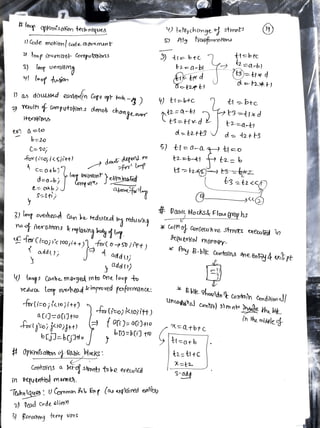 # loop optimisation techniques
1) Code motion / code movement
2) loop invariant computations
3) loop unrolling
4) loop fusion
1) as discussed earlier (in Copt opt tech)
2) result of computations doesnt change over
iterations
ex: a=10
b=20
c=30;
for(i=0; i<5; i++)
{
c=a+b;
d=a-b;
e=a*b;
s=s+i;
}
→ doesnt depend on "for" loop
loop invariant computes
eliminated
above for loop
3) loop overhead can be reduced by reducing
no of iterations & replacing body of loop
ex: for(i=0; i<100; i++)
{
add();
}
⇒ for(i=0; i<50; i++)
{
add();
add();
}
4) loops can be merged into one loop to
reduce loop overhead & improved performance:
for(i=0; i<10; i++)
a[i]=a[i]+10
for(j=0; j<10; j++)
b[j]=b[j]+10
⇒ for(i=0; i<10; i++)
{ a[i]=a[i]+10
b[i]=b[i]+10
}
# Optimisation of Basic blocks:
contains a set of stmts to be executed
in sequential manner.
Techniques: 1) Common sub Exp (as explained earlier)
2) Dead Code elim
3) Renaming temp vars
4) Interchange of stmnts
5) Alg Transformations
19
3) t1=b+c
t2=a-t1
t1=t1*d
d=t2+t1
→
t1=b+c
t2=a-t1
t3=t1*d
d=t2+t1
4) t1=b+c
t2=a-t1
t3=t1*d
d=t2+t3
→
t1=b+c
t3=t1*d
t2=a-t1
d=t2+t3
5) t1=a-a → t1=0
t2=b+t1 → t2=b
# Basic blocks & Flowgraphs
* Coll of consecutive stmnts executed in
sequential manner.
* Any B-blk contains one entry & exit pt
* B blk shouldn't contain conditional/
unconditional control stmnts inside the blk
in the middle of
x=a+b+c
t1=a+b
t2=t1+c
x=t2